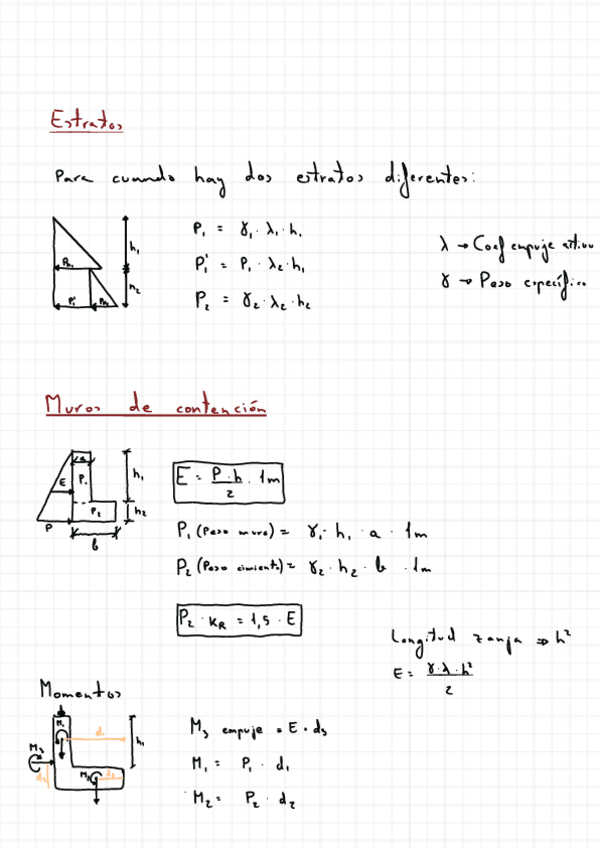 Estratos
Para cuando hay dos estratos diferentes:
P₁ = γ₁ · λ₁ · h₁
P₁' = P₁ · λ₂ · h₁
P₂ = γ₂ · λ₂ · h₂
λ → Coef empuje activo
γ → Peso específico
h₁
h₂
P₁'
Muros de contención
a
E
P₁
P₂
P
b
h₁
h₂
E = P · h / 2 · 1m
P₁ (Peso muro) = γ₁ · h₁ · a · 1m
P₂ (Peso cimiento) = γ₂ · h₂ · b · 1m
P₂ · K_R = 1,5 · E
Longitud zanja ⇒ h²
E = γ · λ · h² / 2
Momentos
M₁
d₁
h₁
M₃
d₃
M₂
d₂
M₃ empuje = E · d₃
M₁ = P₁ · d₁
M₂ = P₂ · d₂